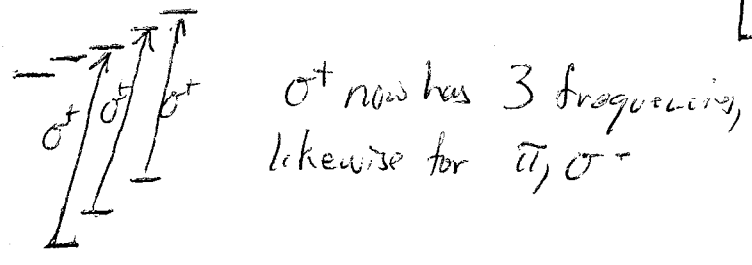 σ⁺ σ⁺ σ⁺
σ⁺ now has 3 frequencies,
likewise for π, σ⁻